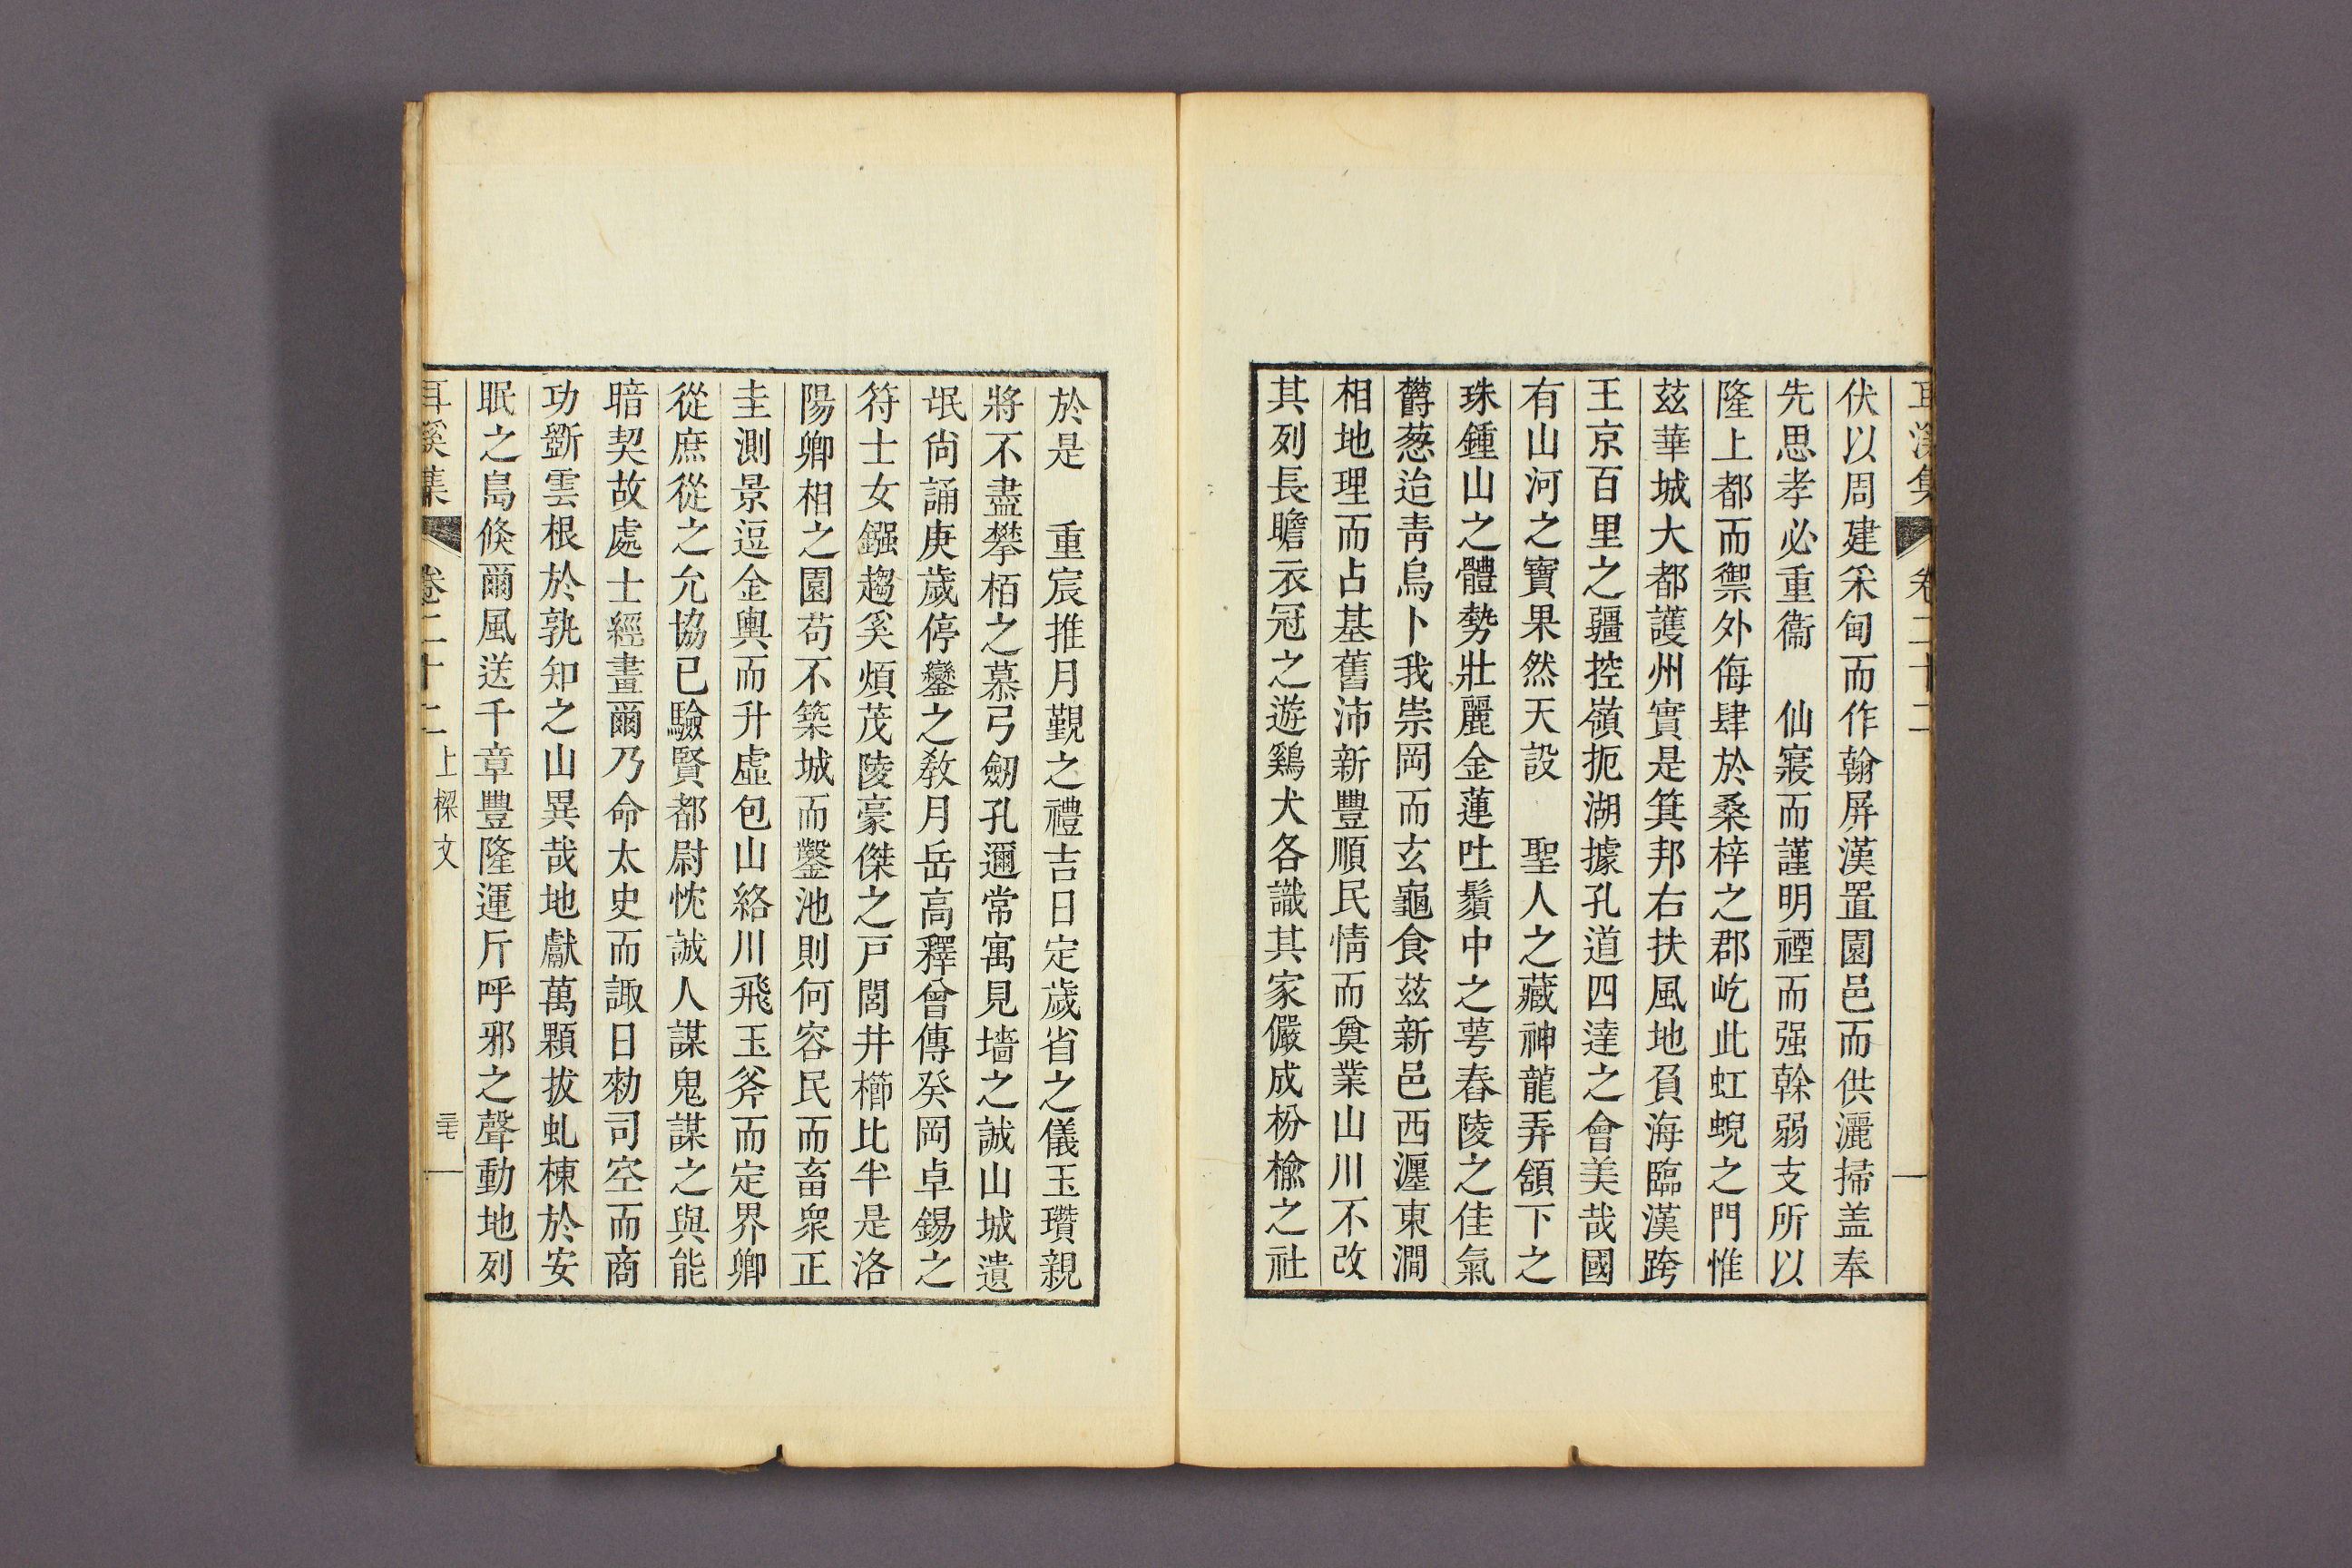 耳溪集 卷二十二
伏以周建采甸而作翰屏漢置園邑而供灑掃盖奉
先思孝必重衞 仙寢而謹明禋而强幹弱支所以
隆上都而禦外侮肆於桑梓之郡屹此虹蜺之門惟
玆華城大都護州實是箕邦右扶風地負海臨漢跨
王京百里之疆控嶺扼湖據孔道四達之會美哉國
有山河之寶果然天設 聖人之藏神龍弄頷下之
珠鍾山之體勢壯麗金蓮吐鬚中之萼舂陵之佳氣
欝葱迨靑烏卜我崇岡而玄龜食玆新邑西瀍東澗
相地理而占基舊沛新豐順民情而奠業山川不改
其列長瞻衣冠之遊鷄犬各識其家儼成枌楡之社
於是 重宸推月覲之禮吉日定歲省之儀玉瓚親
將不盡攀栢之慕弓劒孔邇常寓見墻之誠山城遺
氓尙誦庚歲停鑾之敎月岳高釋曾傳癸岡卓錫之
符士女鏹趨奚煩茂陵豪傑之戶閭井櫛比半是洛
陽卿相之園苟不築城而鑿池則何容民而畜衆正
圭測景逗金輿而升虛包山絡川飛玉斧而定界卿
從庶從之允協已驗賢都尉忱誠人謀鬼謀之與能
暗契故處士經畫爾乃命太史而諏日勑司空而商
功斵雲根於孰知之山異哉地獻萬顆拔虬棟於安
眠之島倏爾風送千章豐隆運斤呼邪之聲動地列
耳溪集 卷二十二 上樑文 三七